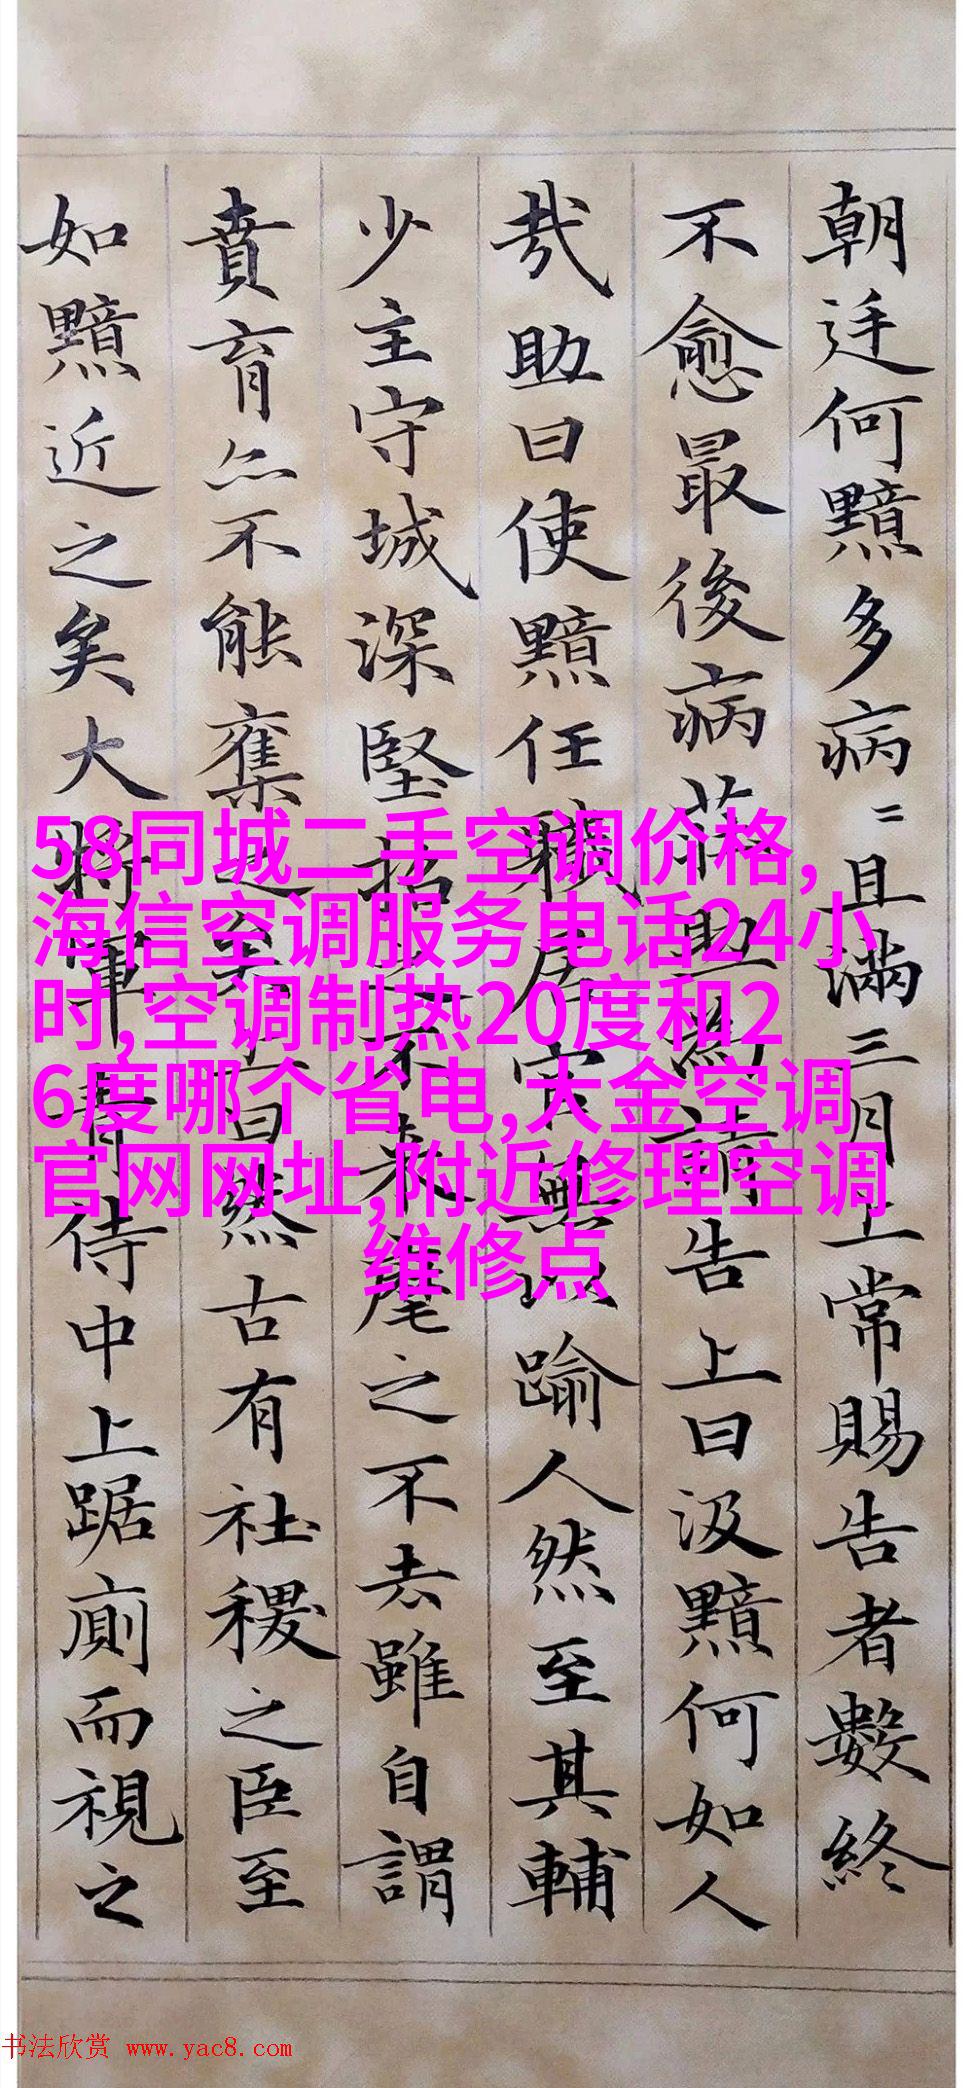 朝廷何黯多病〻且滿三月上常賜告者數終
不愈最後病莊助為請告上曰汲黯何如人
哉助曰使黯任職居官無以踰人然至其輔
少主守城深堅招之不來麾之不去雖自謂
賁育亦不能奪之矣上曰然古有社稷之臣至
如黯近之矣大將軍青侍中上踞廁而視之
58同城二手空调价格,
海信空调服务电话24小
时,空调制热20度和2
6度哪个省电,大金空调
官网网址,附近修理空调
维修点
书法欣赏 www.yac8.com